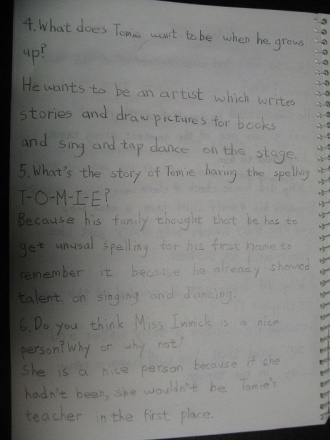 4. What does Tomie want to be when he grows
up?
He wants to be an artist which writes
stories and draw pictures for books
and sing and tap dance on the stage.
5. What's the story of Tomie having the spelling
T-O-M-I-E?
Because his family thought that he has to
get unusal spelling for his first name to
remember it because he already showed
talent on singing and dancing.
6. Do you think Miss Immick is a nice
person? Why or why not?
She is a nice person because if she
hadn't been, she wouldn't be Tomie's
teacher in the first place.